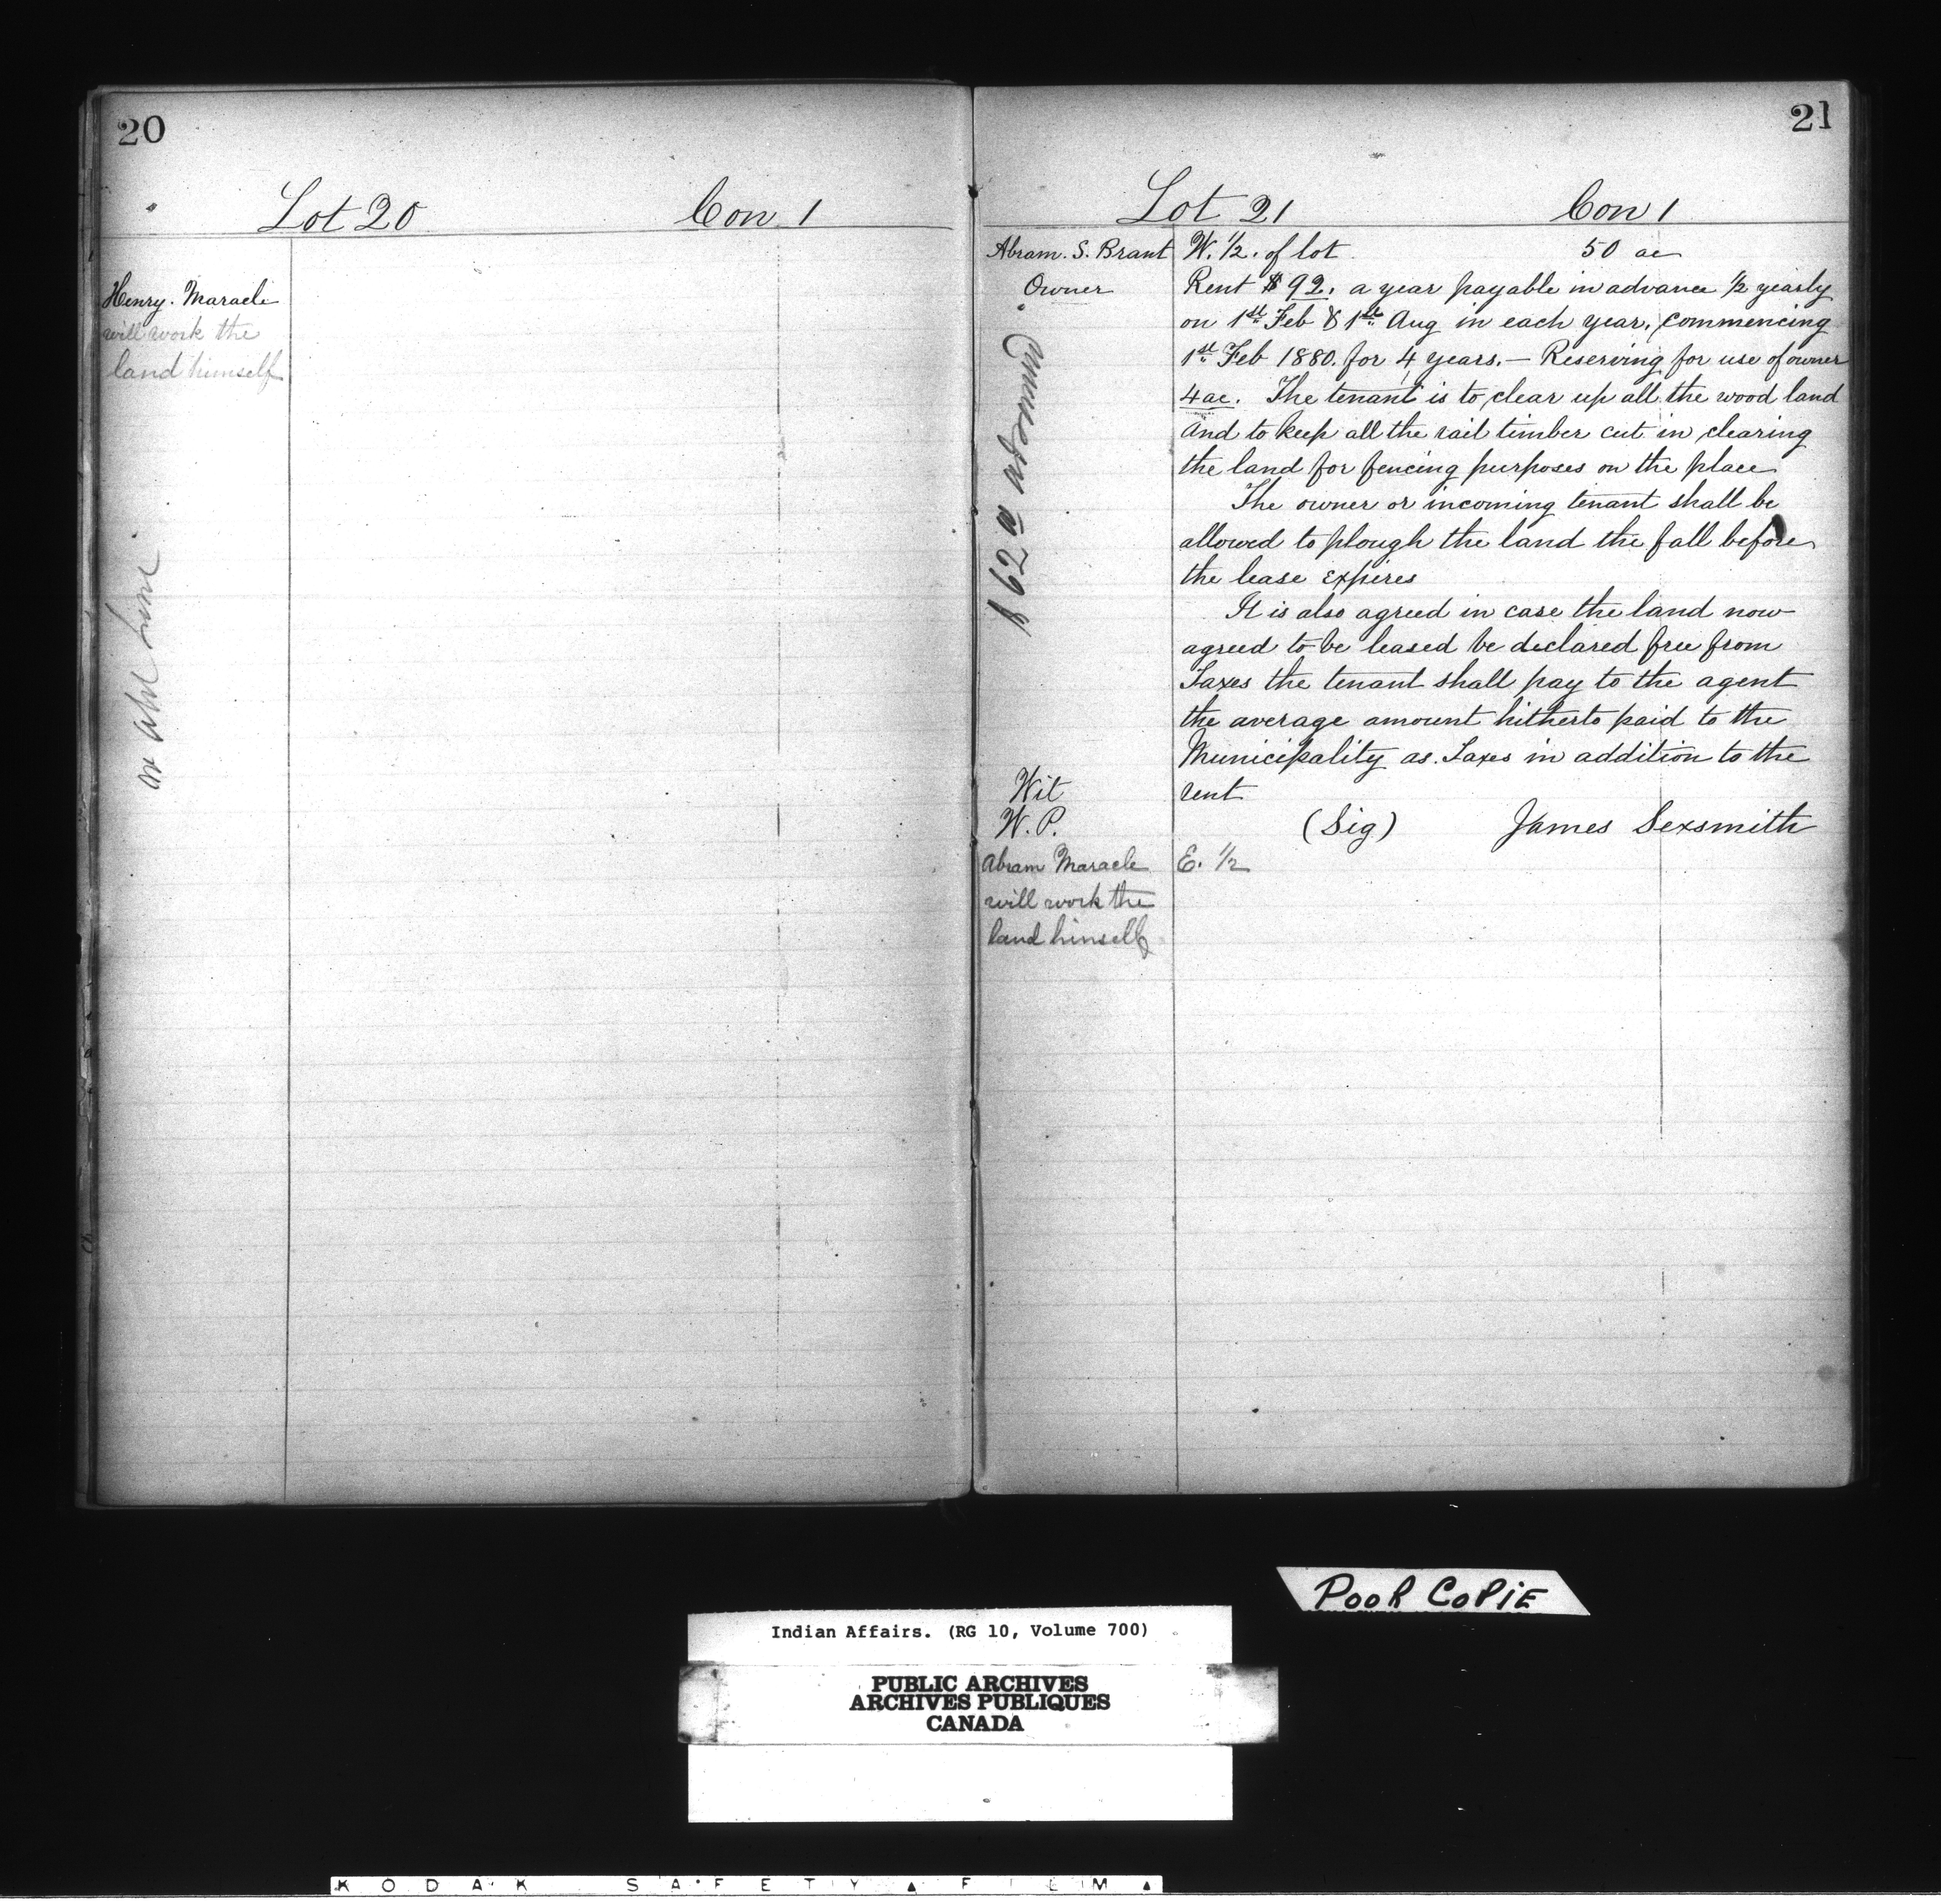 20
Lot 20 Con 1
Henry. Maracle
will work the
land himself
21
Lot 21 Con 1
Abram. S. Brant W. 1/2. of lot 50 ac
Owner Rent $92. a year payable in advance 1/2 yearly
on 1st Feb & 1st Aug in each year, commencing
1st Feb 1880. for 4 years. — Reserving for use of owner
4 ac. The tenant is to clear up all the wood land
and to keep all the rail timber cut in clearing
the land for fencing purposes on the place
The owner or incoming tenant shall be
allowed to plough the land the fall before
the lease expires
It is also agreed in case the land now
agreed to be leased be declared free from
Taxes the tenant shall pay to the agent
the average amount hitherto paid to the
Municipality as Taxes in addition to the
Wit rent
W. P. (Sig) James Sexsmith
Abram Maracle E. 1/2
will work the
land himself
Poor Copie
Indian Affairs. (RG 10, Volume 700)
PUBLIC ARCHIVES
ARCHIVES PUBLIQUES
CANADA
KODAK SAFETY FILM